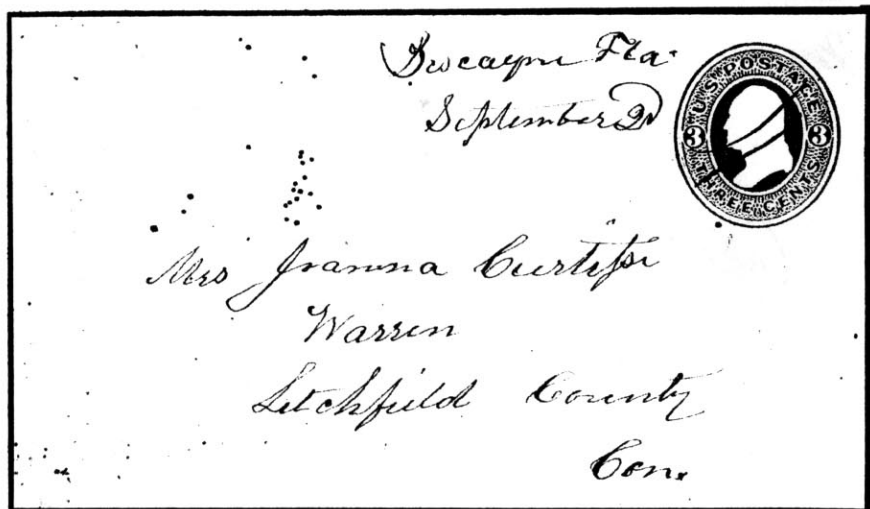 Biscayne Fla.
September 2d
U.S. POSTAGE
3 3
THREE CENTS
Mrs Joanna Curtiss
Warren
Litchfield County
Con.